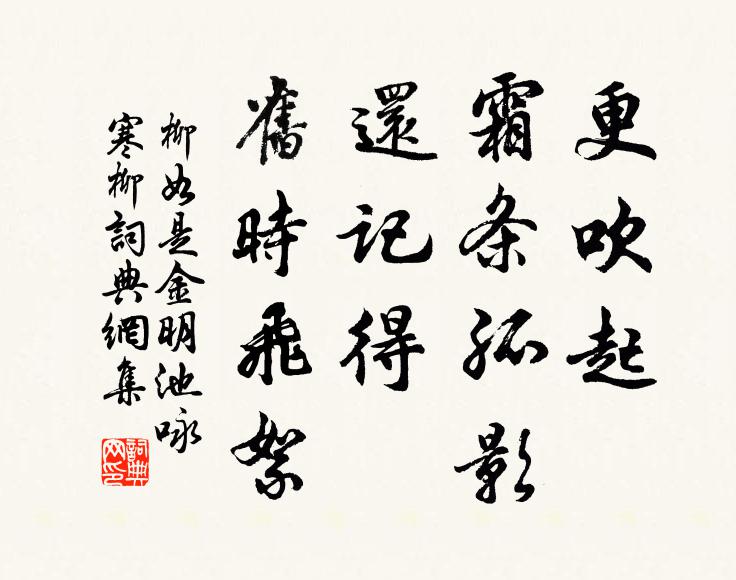 更吹起
霜条孤影
還記得
舊時飛絮
柳如是金明池咏
寒柳詞典網集
詞典網印